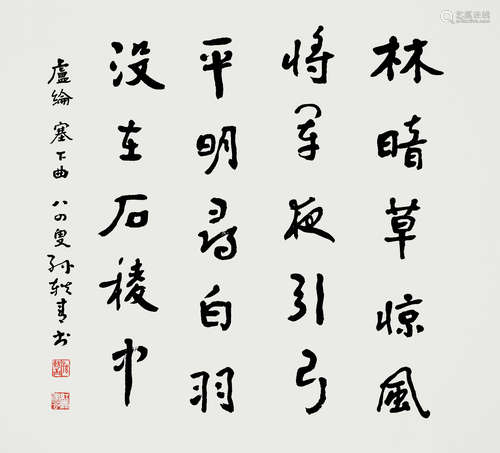 林暗草惊风
将军夜引弓
平明寻白羽
没在石棱中
盧綸 塞下曲 八四叟孙轶青书